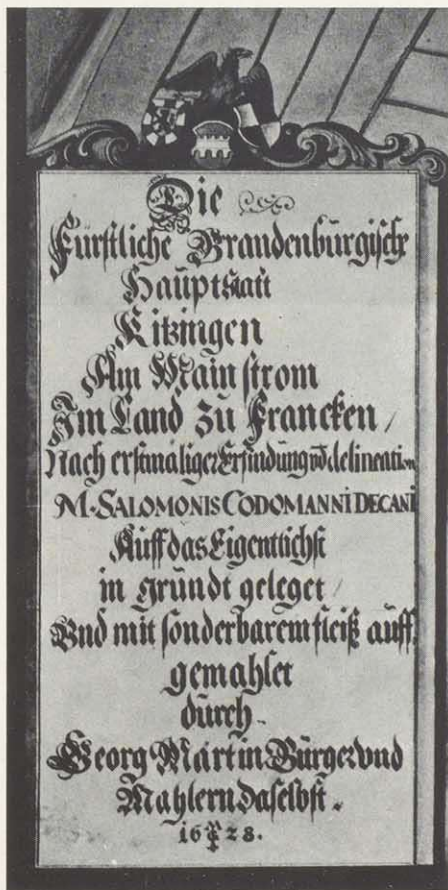 Die
Fürstliche Brandenbürgische
Haüptstatt
Kitzingen
Am Main strom
Im Land zu Francken /
Nach erstmaliger Erfindung vnd delineation
M. SALOMONIS CODOMANNI DECANI
Aüff das Eigentlichst
in gründt geleget /
Vnd mit sonderbarem fleiß aüff
gemahlet
dürch
Georg Martin Bürger vnd
Mahlern daselbst.
1628.